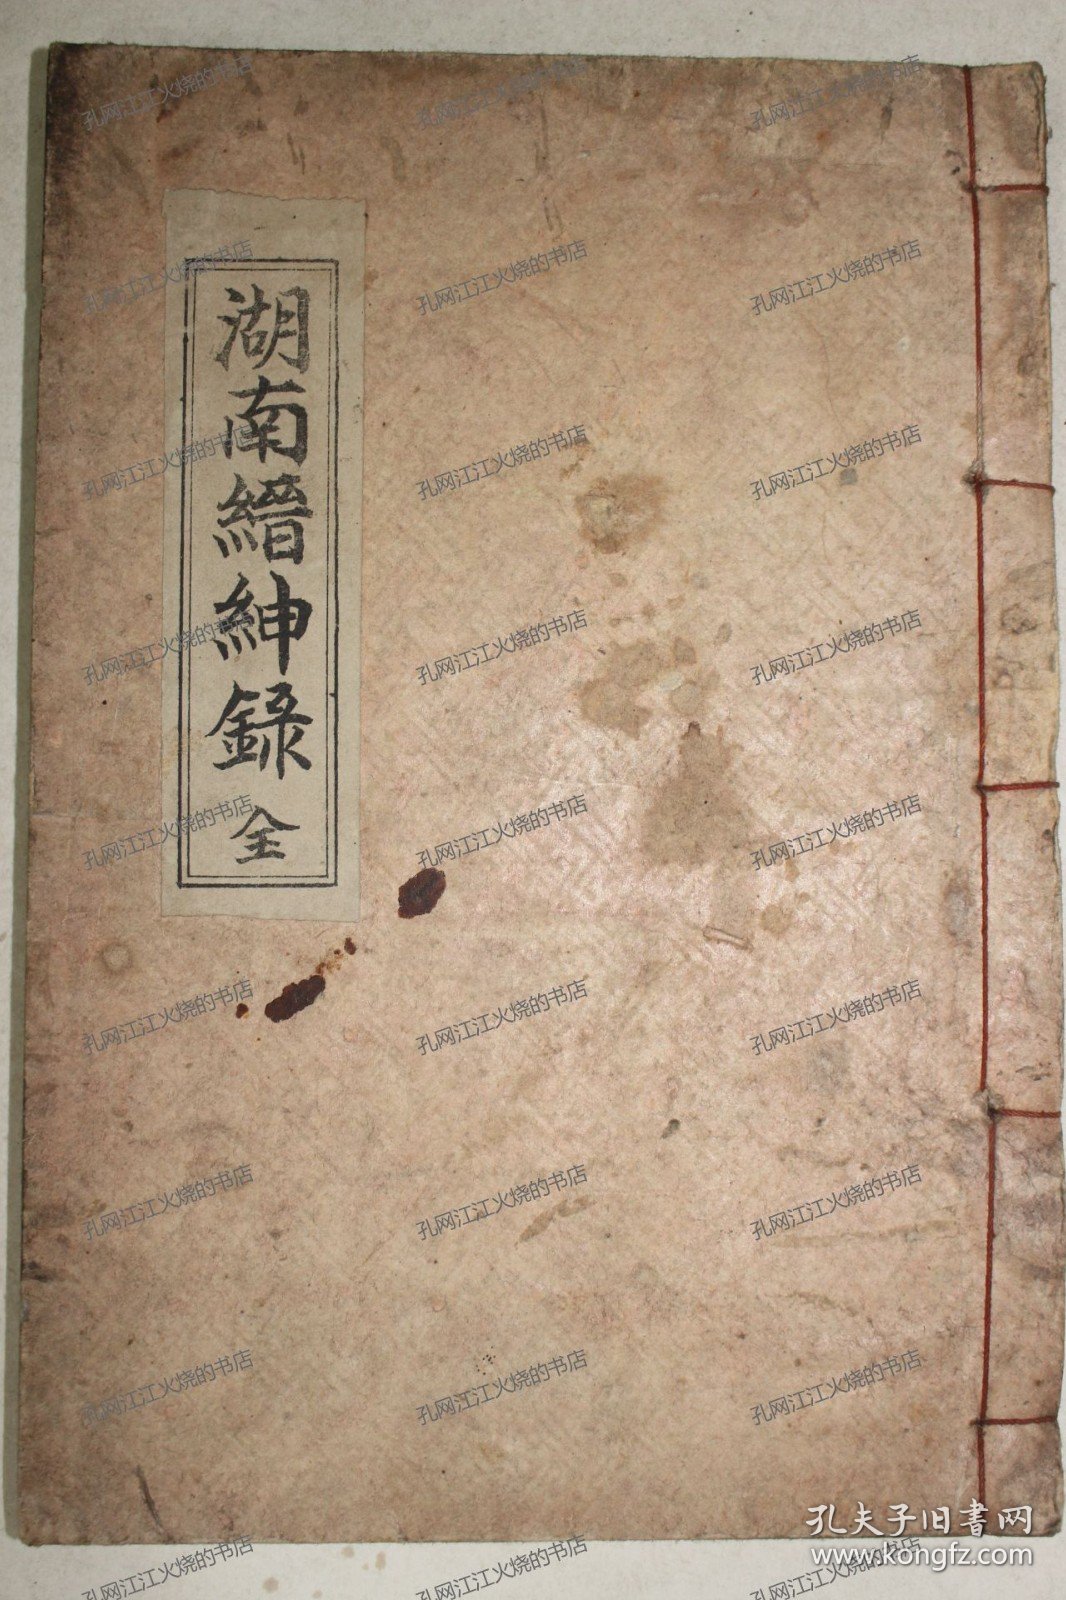 湖南縉紳錄 全
孔网江江火烧的书店 孔网江江火烧的书店 孔网江江火烧的书店
孔网江江火烧的书店 孔网江江火烧的书店 孔网江江火烧的书店
孔网江江火烧的书店 孔网江江火烧的书店 孔网江江火烧的书店
孔网江江火烧的书店 孔网江江火烧的书店 孔网江江火烧的书店
孔网江江火烧的书店 孔网江江火烧的书店 孔网江江火烧的书店
孔网江江火烧的书店 孔网江江火烧的书店 孔网江江火烧的书店
孔网江江火烧的书店 孔网江江火烧的书店 孔网江江火烧的书店
孔网江江火烧的书店 孔网江江火烧的书店 孔网江江火烧的书店
孔网江江火烧的书店 孔网江江火烧的书店 孔网江江火烧的书店
孔夫子旧書网
www.kongfz.com